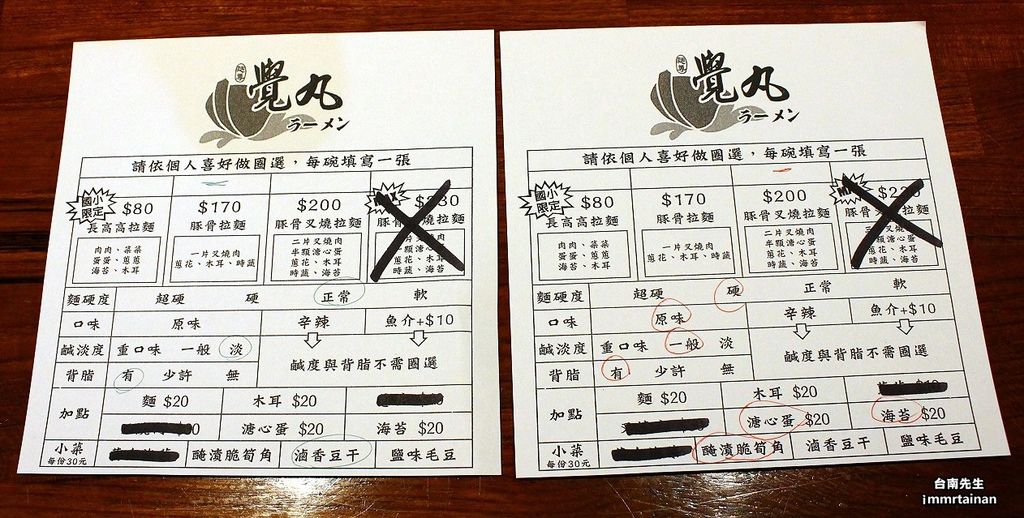 覺丸
ラーメン
請依個人喜好做圈選，每碗填寫一張
國小限定
$80
$170
$200
長高高拉麵
豚骨拉麵
豚骨叉燒拉麵
肉肉、菜菜
蛋蛋、蔥蔥
海苔、木耳
一片叉燒肉
蔥花、木耳、時蔬
二片叉燒肉
半顆溏心蛋
蔥花、木耳
時蔬、海苔
時蔬、海苔
麵硬度 超硬 硬 正常 軟
口味 原味 辛辣 魚介+$10
鹹淡度 重口味 一般 淡
鹹度與背脂不需圈選
背脂 有 少許 無
加點
麵 $20 木耳 $20
溏心蛋 $20 海苔 $20
小菜
每份30元
醃漬脆筍角 滷香豆干 鹽味毛豆
覺丸
ラーメン
請依個人喜好做圈選，每碗填寫一張
國小限定
$80
$170
$200
長高高拉麵
豚骨拉麵
豚骨叉燒拉麵
肉肉、菜菜
蛋蛋、蔥蔥
海苔、木耳
一片叉燒肉
蔥花、木耳、時蔬
二片叉燒肉
半顆溏心蛋
蔥花、木耳
時蔬、海苔
時蔬、海苔
麵硬度 超硬 硬 正常 軟
口味 原味 辛辣 魚介+$10
鹹淡度 重口味 一般 淡
鹹度與背脂不需圈選
背脂 有 少許 無
加點
麵 $20 木耳 $20
溏心蛋 $20 海苔 $20
小菜
每份30元
醃漬脆筍角 滷香豆干 鹽味毛豆
台南先生
immrtainan